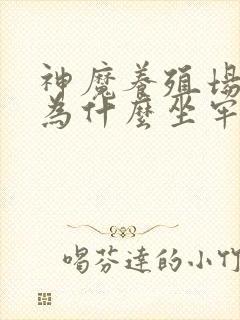 神魔養殖場
為什麼坐牢
喝芬達的小竹